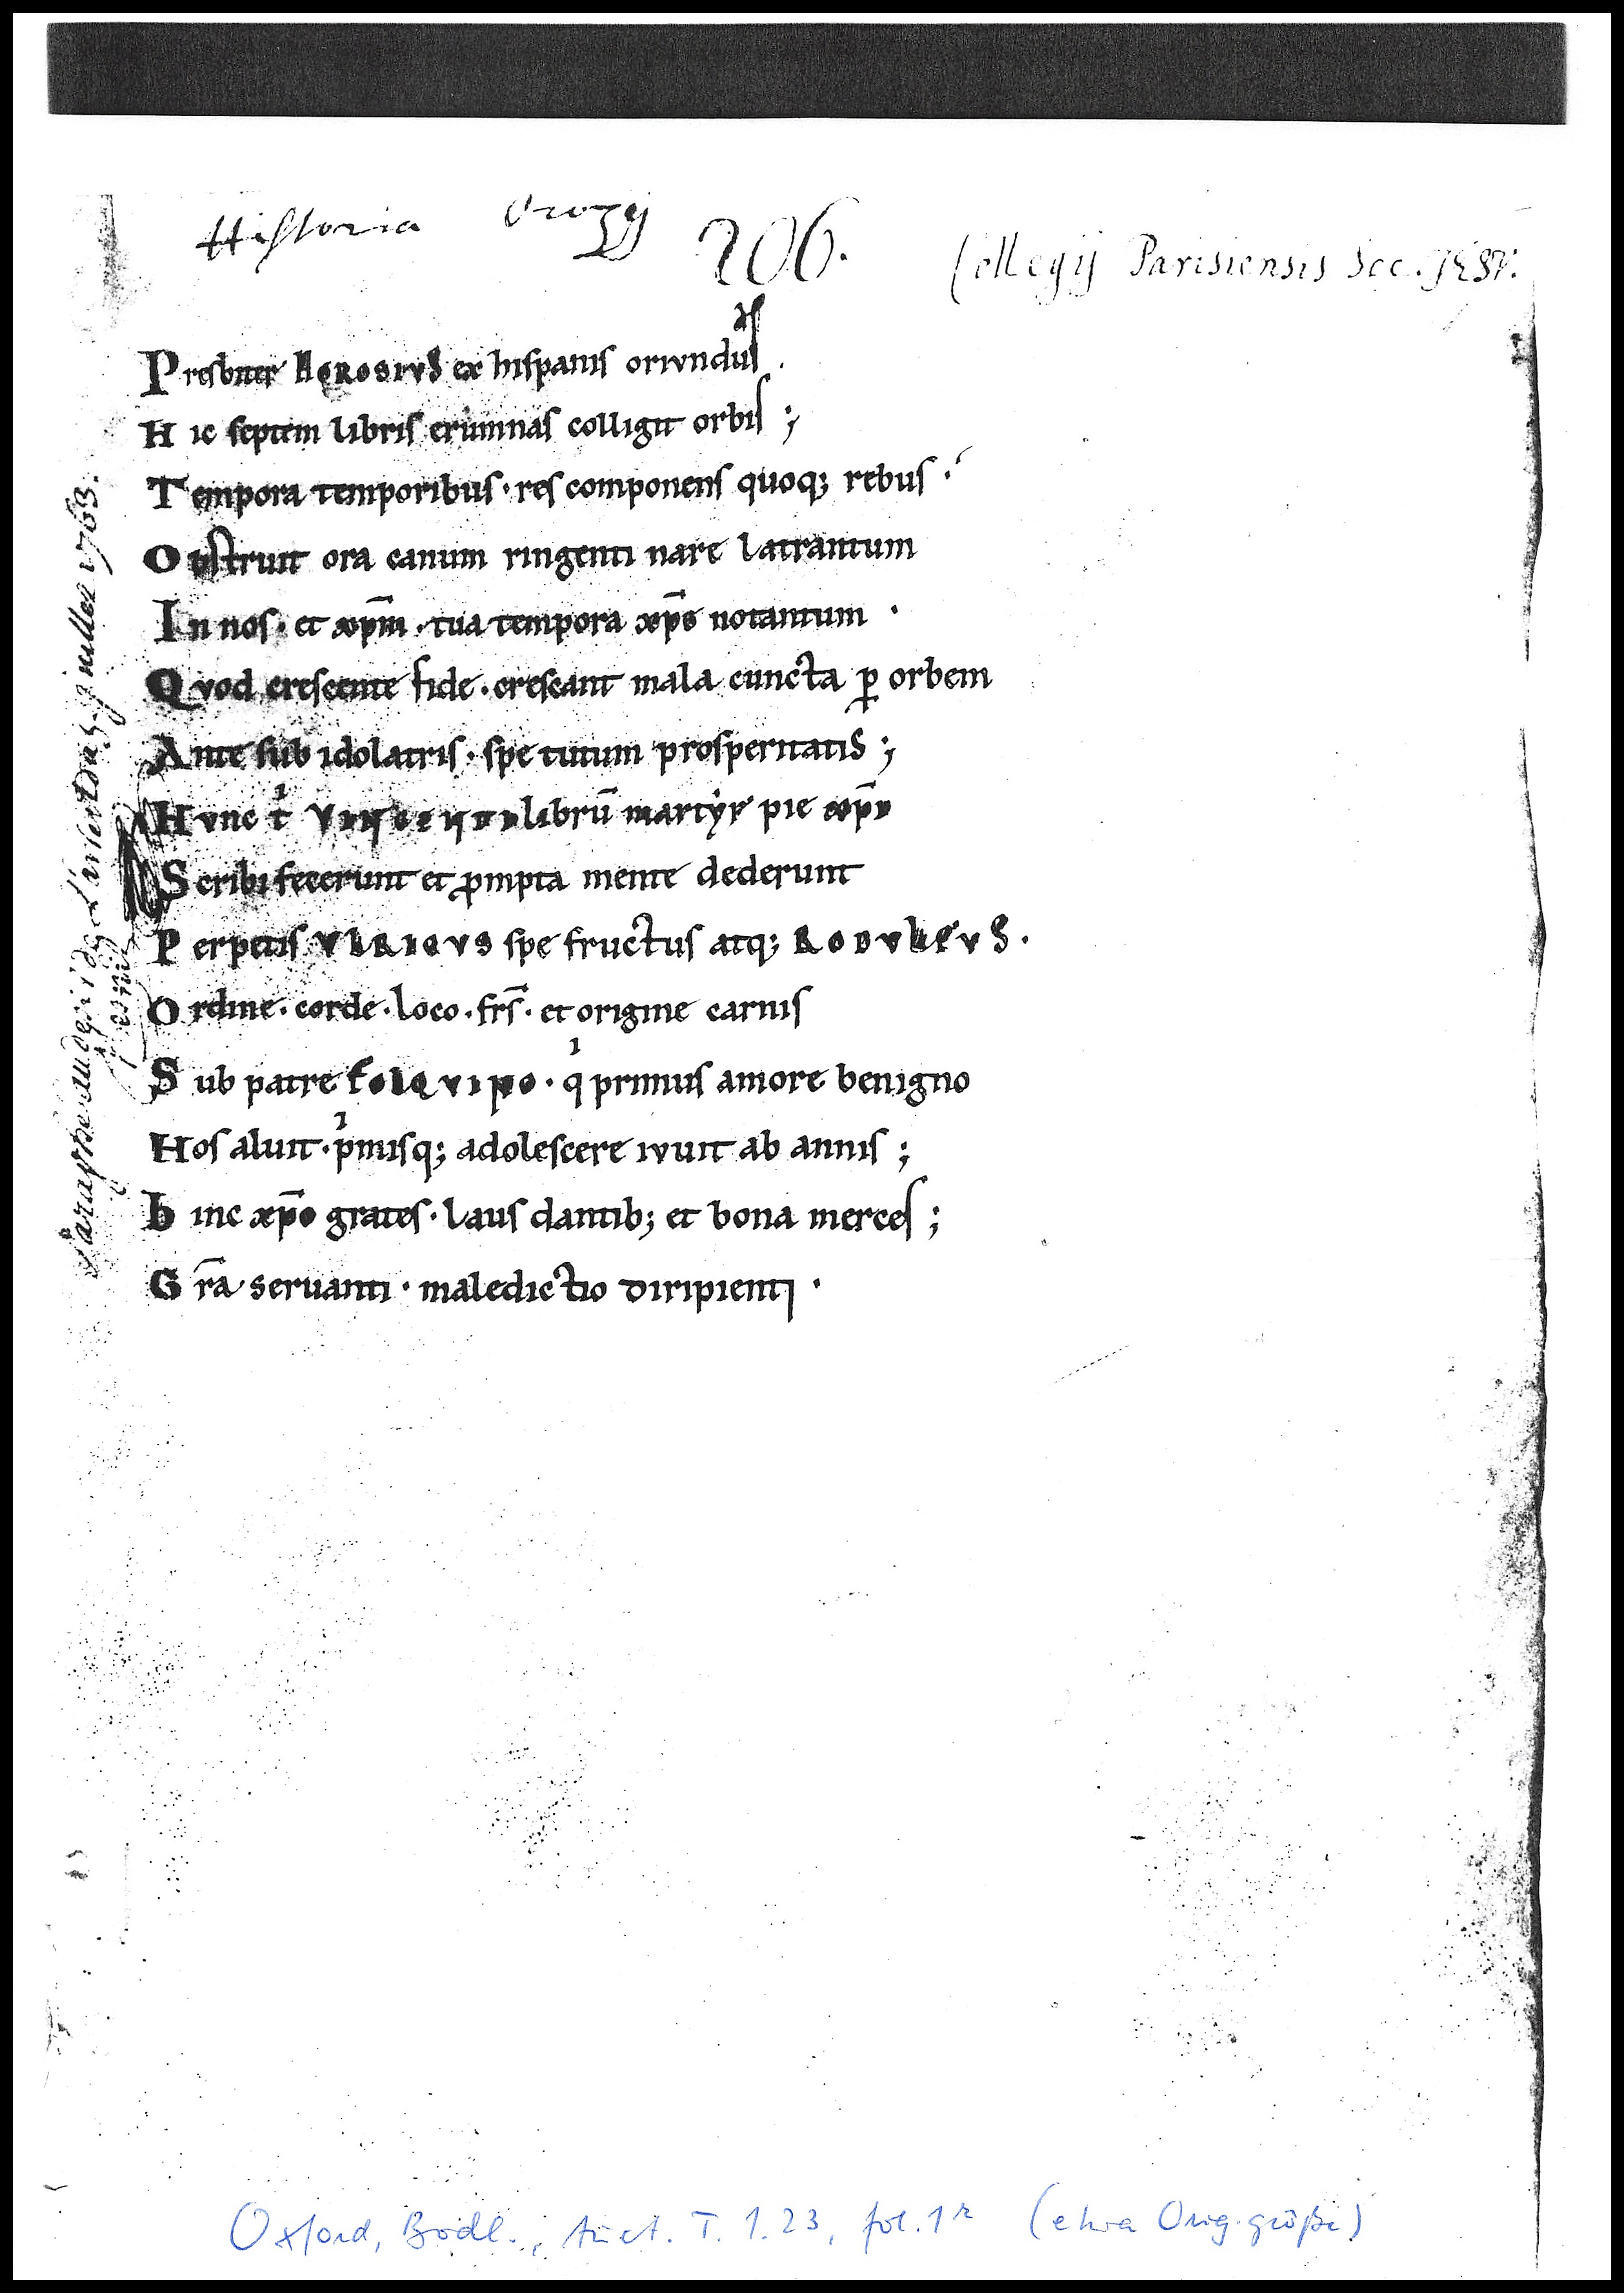 Historia Orozij
206.
Collegij Parisiensis Soc. Jesu.
Presbiter HOROSIVS ex hispanis orivndus.
Hic septem libris erumnas colligit orbis;
Tempora temporibus· res componens quoq; rebus·
Obstruit ora canum ringenti nare latrantum
In nos· et xp̄m· tua tempora xp̄e notantum·
Qvod crescente fide· crescant mala cuncta ꝑ orbem
Ante sub idolatris· spe tutum prosperitatis;
Hvnc tⁱ VINCENTI librū martyr pie xp̄i
Scribi fecerunt et ꝓmpta mente dederunt
Perpetis VLRICVS spe fructus atq; RODVLFVS·
Ordine· corde· loco· fr̄s· et origine carnis
Sub patre FOLQVINO· qⁱ primus amore benigno
Hos aluit· pⁱmisq; adolescere ivuit ab annis;
hinc xp̄o grates· laus dantib; et bona merces;
Gr̄a servanti· maledictio diripienti·
Paraphé au desir de l'arrest du 5 juillet 1763.
Oxford, Bodl., Auct. T. 1. 23, fol. 1r (etwa Orig.größe)